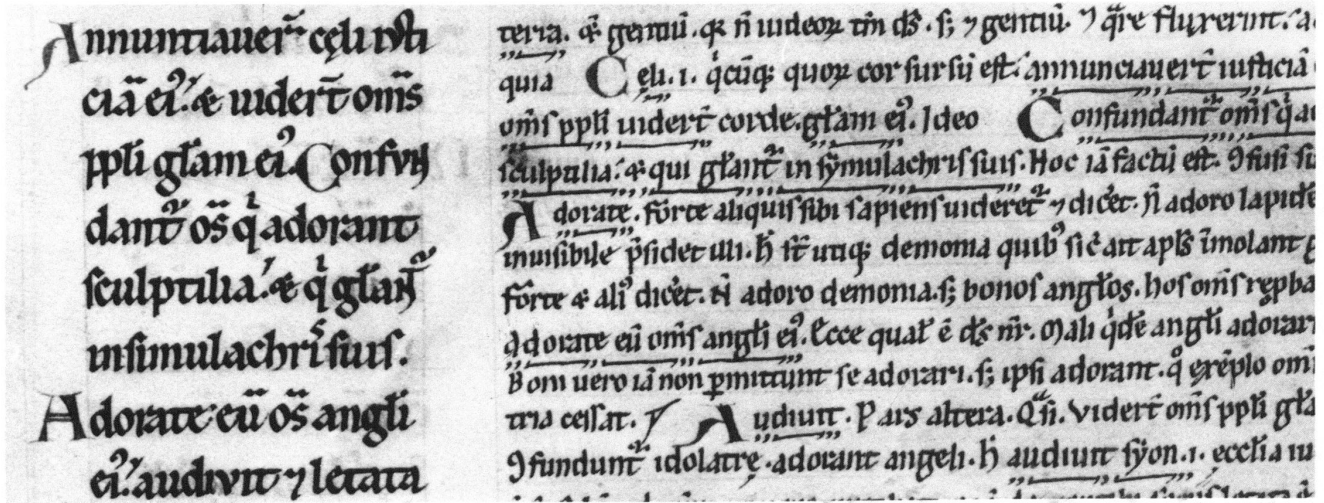 Annuntiauer̄ cęli iusti
ciā ei⁹. & uidert̄ om̄s
ppl̄i gl̄am ei⁹. Confun
dant᷑ os̄ q̇ adorant
sculptilia. & q̇ gl̄ant᷑
insimulachris suis.
Adorate eū os̄ angl̄i
ei⁹. audiuit ⁊ letata
teria. gentiū. n̄ iudeoꝝ tm̄ ds̄. s; ⁊ gentiū. ⁊ q̄re fluxerint.
quia Cęli .i. q̇cūq; quoꝝ cor sursū est. annunciauert̄ iusticiā
om̄s ppl̄i uidert̄ corde. gl̄am ei⁹. Ideo Confundant᷑ om̄s q̇
sculptilia. & qui gl̄ant᷑ in symulachris suis. Hoc iā factū est. ꝯfusi
Adorate. forte aliquis sibi sapiens uideret᷑ ⁊ dic̄et. n̄ adoro lapidē
inuisibile p̄sidet illi. h̄ st̄ utiq; demonia quib⁹ sic̄ ait apl̄s īmolant
forte & ali⁹ dic̄et. N̄ adoro demonia. s; bonos angl̄os. hos om̄s
Adorate eū om̄s angl̄i ei⁹. Ecce qual̄ ē ds̄ nr̄. Mali q̇dē angl̄i
Boni uero iā non ꝑmittunt se adorari. s; ipsi adorant. exēplo
tria cessat. Audiuit. Pars altera. Vidert̄ om̄s ppl̄i
ꝯfundunt᷑ idolatrę. adorant angeli. h̄ audiuit syon .i. eccl̄ia